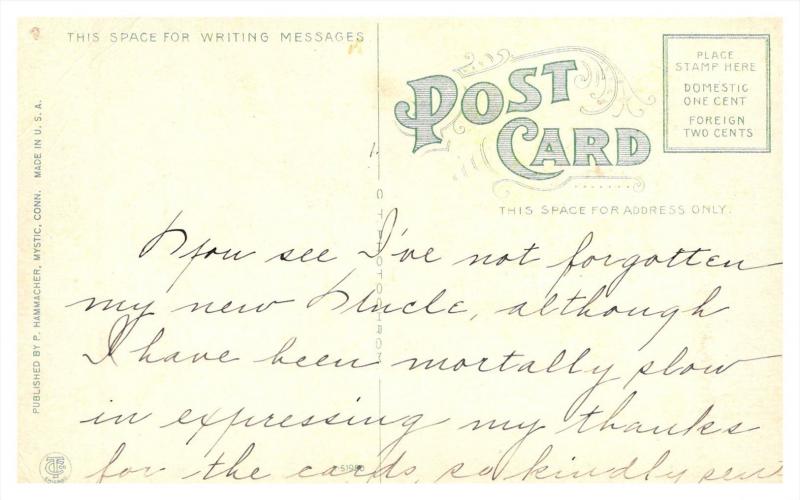 THIS SPACE FOR WRITING MESSAGES
POST
CARD
PLACE
STAMP HERE
DOMESTIC
ONE CENT
FOREIGN
TWO CENTS
THIS SPACE FOR ADDRESS ONLY.
PUBLISHED BY P. HAMMACHER, MYSTIC, CONN. MADE IN U. S. A.
you see I've not forgotten
my new Uncle, although
I have been mortally slow
in expressing my thanks
for the cards, so kindly sent